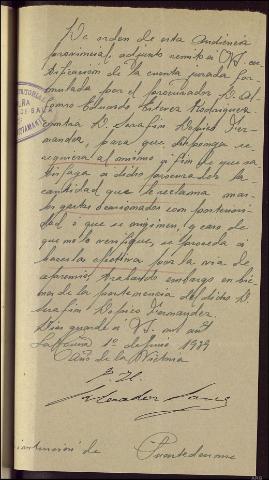 De orden de esta Audiencia
provincial, adjunto remito a VS. cer-
tificación de la cuenta jurada for-
mulada por el procurador D.
Eduardo Rodriguez
contra D. Serafín Dopico Fer-
nandez, para que disponga se
requiera al mismo a fin de que sa-
tisfaga a dicho procurador la
cantidad que le reclama mas
gastos ocasionados con posteriori-
dad i que se originen, y caso de
que no lo verifique, se proceda a
hacerla efectiva por la via de
apremio, trabando embargo en bie-
nes de la pertenencia del dicho D.
Serafin Dopico Fernandez.
Dios guarde a VS. m
La Coruña 1º de Junio 1939
Año de la Victoria
P. H.
instrucción de Puentedeume